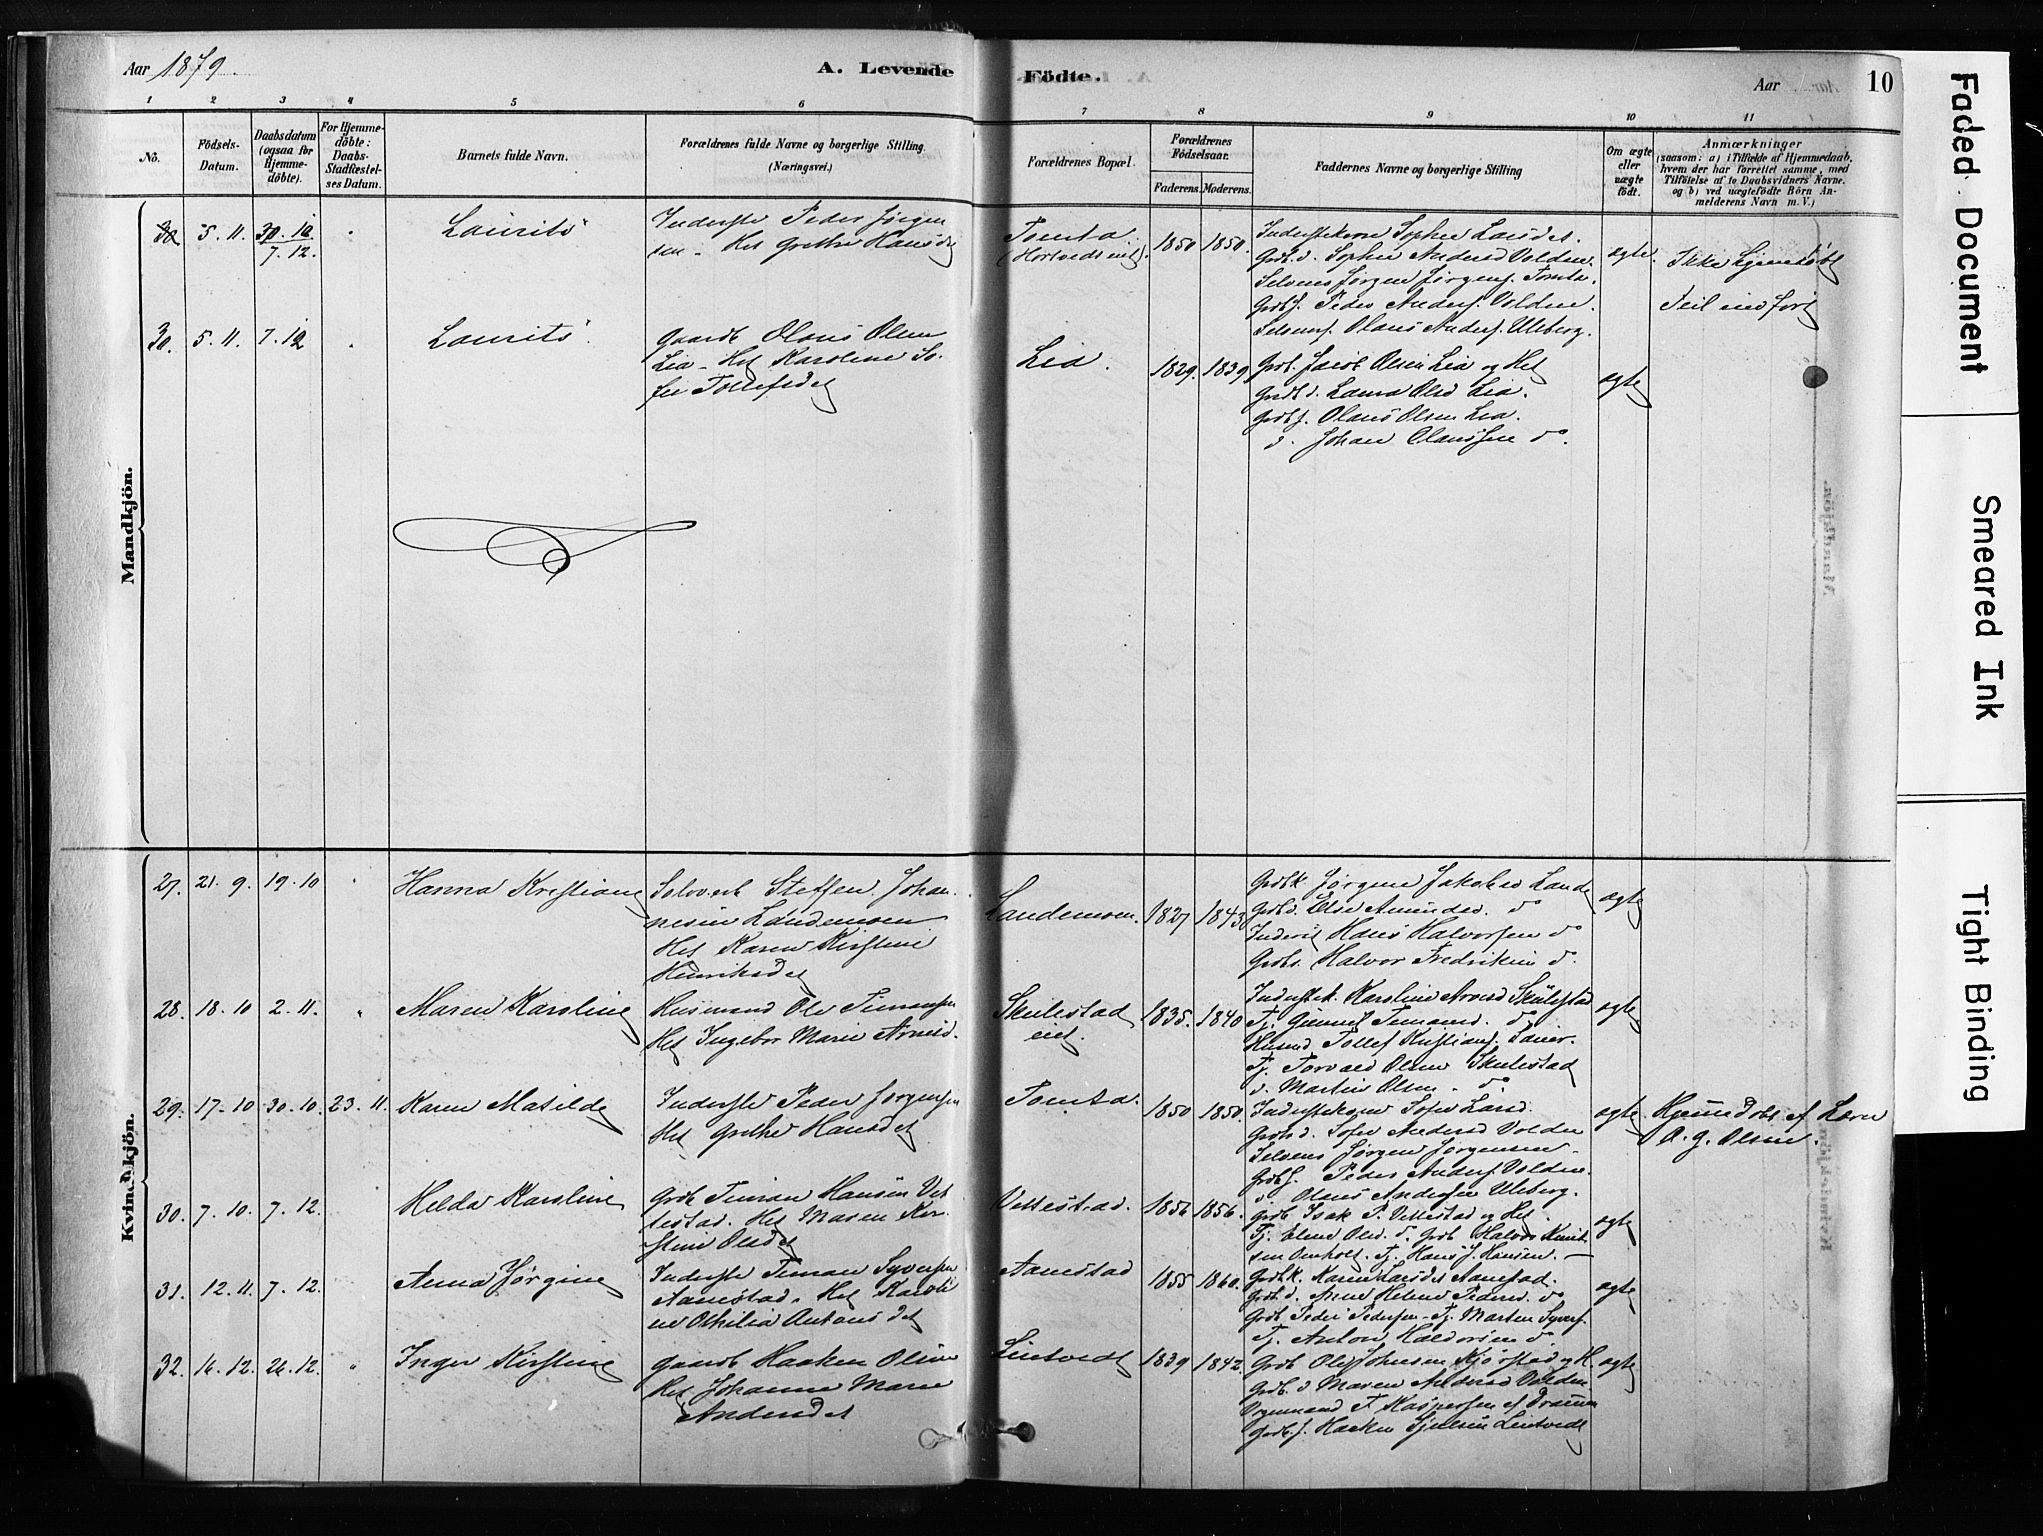 Aar 1879.
A. Levende Födte.
Aar
10
1 2 3 4 5 6 7 8 9 10 11
No.
Födsels-
Datum.
Daabsdatum
(ogsaa for
Hjemme-
döbte).
For Hjemme-
döbte:
Daabs-
Stadfæstel-
ses Datum.
Barnets fulde Navn.
Forældrenes fulde Navne og borgerlige Stilling
(Næringsvei.)
Forældrenes Bopæl.
Forældrenes
Födselsaar.
Faderens. Moderens.
Faddernes Navne og borgerlige Stilling
Om ægte
eller
uægte
födt.
Anmærkninger
(saasom: a) i Tilfælde af Hjemmedaab,
hvem der har forrettet samme, med
Tilföielse af to Daabsvidners Navne,
og b) ved uægtefödte Börn An-
melderens Navn m. V.)
Mandkjön.
5. 11. 30. 10
7. 12.
Laurits
Inderste Peder Jörgen
sen. Hst Grethe Hansd
Tomta
1850 1850.
Sophie Larsdt.
Grdb.d. Sophie Andersd Volden.
Selveier Jörgen Jörgens. Tomta.
Grdbs. Peder Anders. Volden.
Olaus Anders. Uleberg.
ægte.
Ikke hjemdöbt
Feil indfört
30. 5. 11. 7. 12
Laurits
Gaardb Olaus Olsen
Lia - Hst Karoline So-
fie Tollefsdt
Lia.
1829. 1839
Grdb. Jacob Olsen Lia og Hst
Grdb d. Laura Olsd Lia.
Grdbs. Olaus Olsen Lia.
d. Johan Olaussen do.
ægte
Kvindekjön.
27. 21. 9. 19. 10
Hanna Kristiane
Selveier Steffen Johan-
nesen Landemoen
Hst Karen Kirstine
Henriksdt
Landemoen.
1827 1843
Grdbk. Jörgine Jakobsd Lande
Grdb d. Else Amundsd. do
Inderst Hans Halvorsen do
Grdbs. Halvor Fredriksen d.
ægte
28. 18. 10 2. 11.
Maren Karoline
Husmand Ole Timansen
Hst Ingebor Marie Arnesd.
Skulestad
eiet.
1835. 1840
Inderstek. Karoline Arnesd Skulestad
Tj. Gunnil Timansd. do
Husmd Tollef Kristians.
Tj. Torvald Olsen Skulestad
d. Martin Olsen - do
ægte
29. 17. 10 30. 10. 23. 11.
Karen Matilde
Inderste Peder Jörgensen
Hst Grethe Hansdt
Tomta.
1850 1850.
Inderstekone Sofie Larsd.
Grdb d. Sofie Andersd Volden
Selveier Jörgen Jörgensen -
Grdbs. Peder Anders. Volden.
d. Olaus Andersen Uleberg.
ægte
Hjemdöbt af Lærer
A. G. Olsen.
30. 7. 10. 7. 12.
Helda Karoline
Grdb Timan Hansen Vet-
testad. Hst Maren Kir-
stine Olsdt
Vettestad.
1856 1856.
Grdb Isak P. Vettestad og Hst.
Tj. Eline Olsd. d. Grdb Halvor Knut-
sen Omholt. Tj. Hans J. Hansen. -
ægte
31. 12. 11. 7. 12.
Anna Jörgine
Inderste Timan Syversen
Aanestad. Hst Karoli-
ne Othilia Antonsdt
Aanestad
1855 1860.
Grdbk. Karen Larsdt Aanestad.
Grdb d. Anne Helene Pedersd. do
Grdb Peder Pedersen - Tj. Morten Syvers.
Tj. Anton Haldorsen do
ægte
32. 16. 12. 26. 12.
Inger Kirstine
Gaardb Haaken Olsen
Hst Johanne Marie
Andersdt
Lintvedt
1839 1842.
Grdb Ole Johnsen Kjörstad og H.
Grdb. d Maren Andersd Volden
F. Kaspersen af
Grdb.s. Haaken Lintvedt
ægte
Faded Document
Smeared Ink
Tight Binding